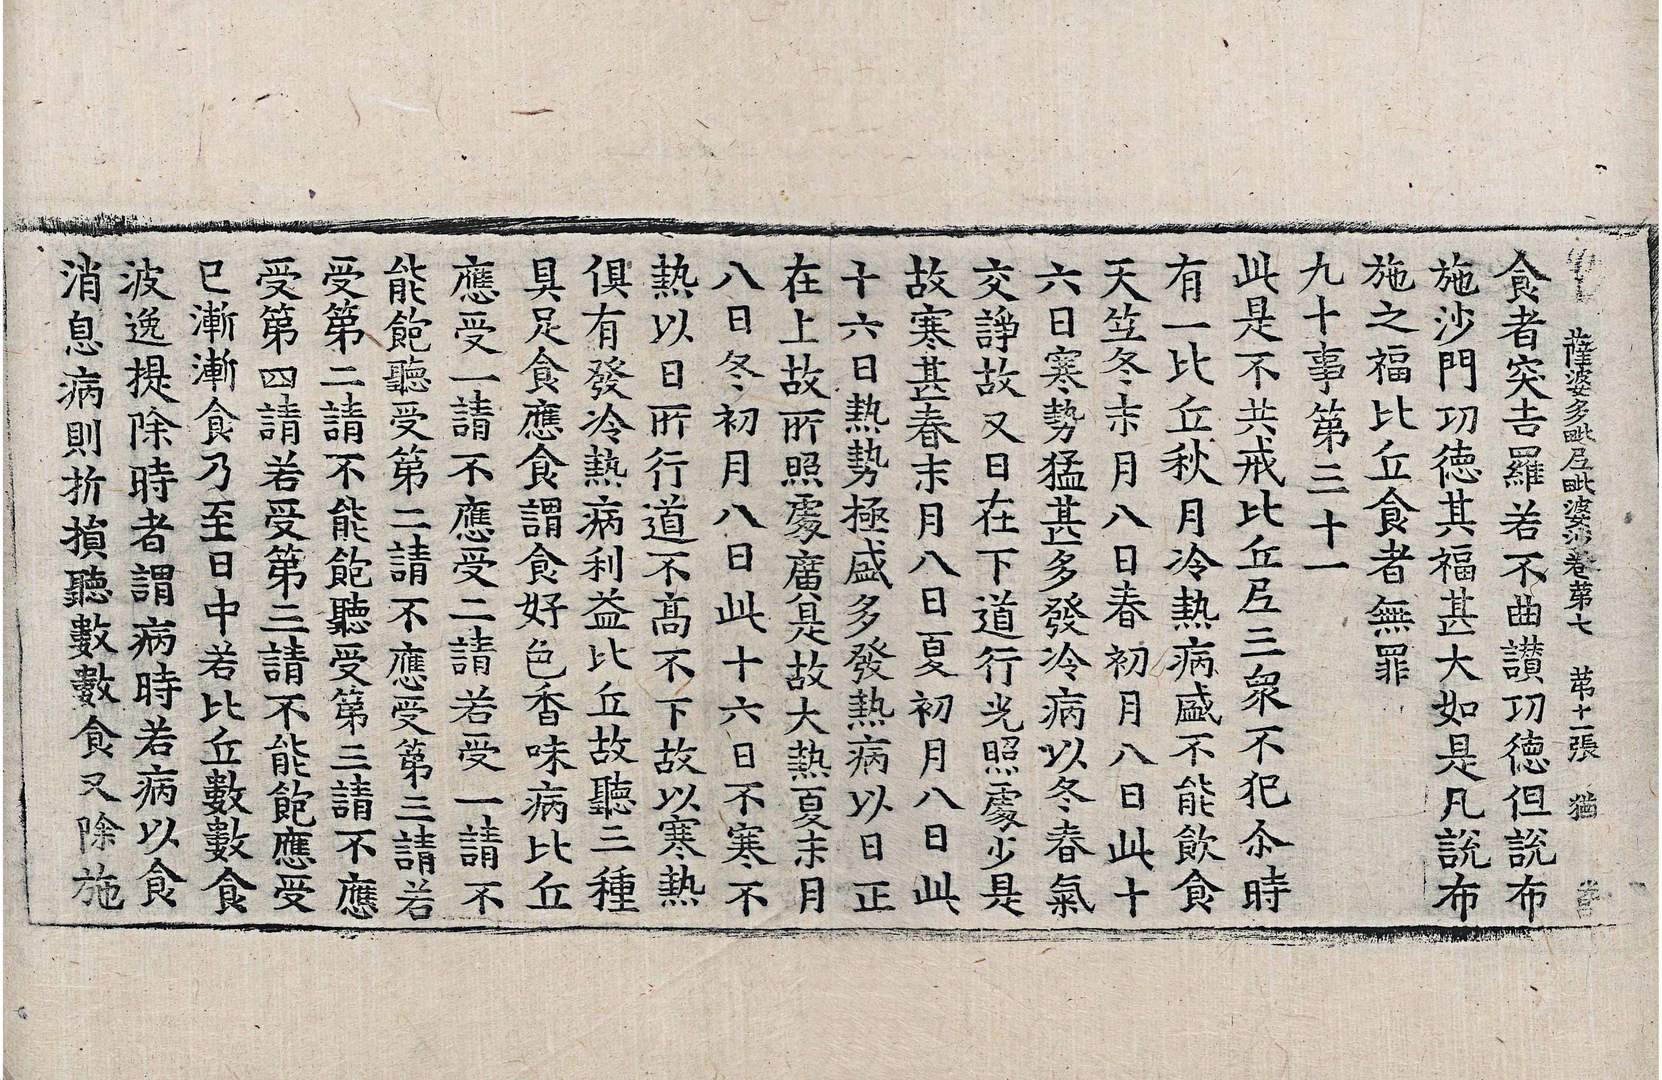 薩婆多毗尼毗婆沙卷第七　第十一張　猶
食者突吉羅若不曲讃功德但說布
施沙門功德其福甚大如是凡說布
施之福比丘食者無罪
九十事第三十一
此是不共戒比丘尼三衆不犯尒時
有一比丘秋月冷熱病盛不能飮食
天竺冬末月八日春初月八日此十
六日寒勢猛甚多發冷病以冬春氣
交諍故又日在下道行光照處少是
故寒甚春末月八日夏初月八日此
十六日熱勢極盛多發熱病以日正
在上故所照處廣是故大熱夏末月
八日冬初月八日此十六日不寒不
熱以日所行道不高不下故以寒熱
俱有發冷熱病利益比丘故聽三種
具足食應食謂食好色香味病比丘
應受一請不應受二請若受一請不
能飽聽受第二請不應受第三請若
受第二請不能飽聽受第三請不應
受第四請若受第三請不能飽應受
已漸漸食乃至日中若比丘數數食
波逸提除時者謂病時若病以食
消息病則折損聽數數食又除施